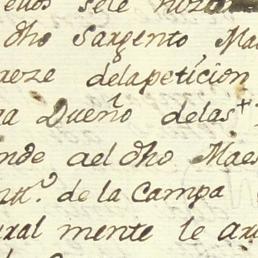 sele
dho Sargento Ma
delapeticion
Dueño delas
nde ael dho Maes
de la Campa
ral mente le